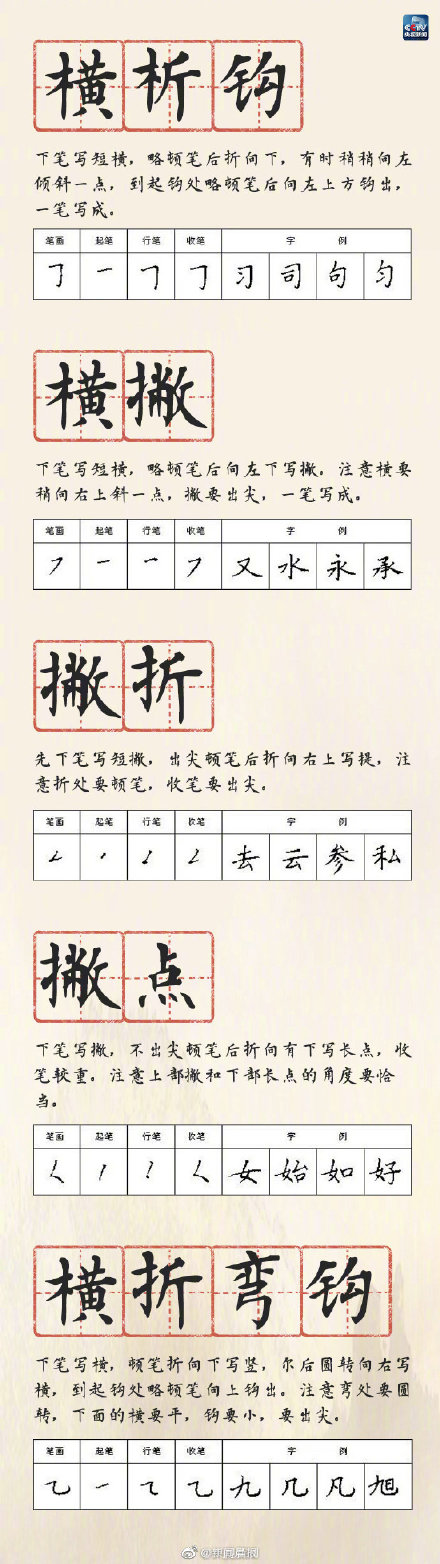 CCTV
央视新闻
横析钩
下笔写短横，略顿笔后折向下，有时稍稍向左
倾斜一点，到起钩处略顿笔后向左上方钩出，
一笔写成。
笔画 起笔 行笔 收笔 字 例
㇆ 一 ㇕ ㇆ 习 司 句 匀
横撇
下笔写短横，略顿笔后向左下写撇，注意横要
稍向右上斜一点，撇要出尖，一笔写成。
笔画 起笔 行笔 收笔 字 例
㇇ 一 ㇖ ㇇ 又 水 永 承
撇折
先下笔写短撇，出尖顿笔后折向右上写提，注
意折处要顿笔，收笔要出尖。
笔画 起笔 行笔 收笔 字 例
去 云 参 私
撇点
下笔写撇，不出尖顿笔后折向有下写长点，收
笔较重。注意上部撇和下部长点的角度要恰
当。
笔画 起笔 行笔 收笔 字 例
女 始 如 好
横折弯钩
下笔写横，顿笔折向下写竖，尔后圆转向右写
横，到起钩处略顿笔向上钩出。注意弯处要圆
转，下面的横要平，钩要小，要出尖。
笔画 起笔 行笔 收笔 字 例
九 几 凡 旭
@新闻晨报